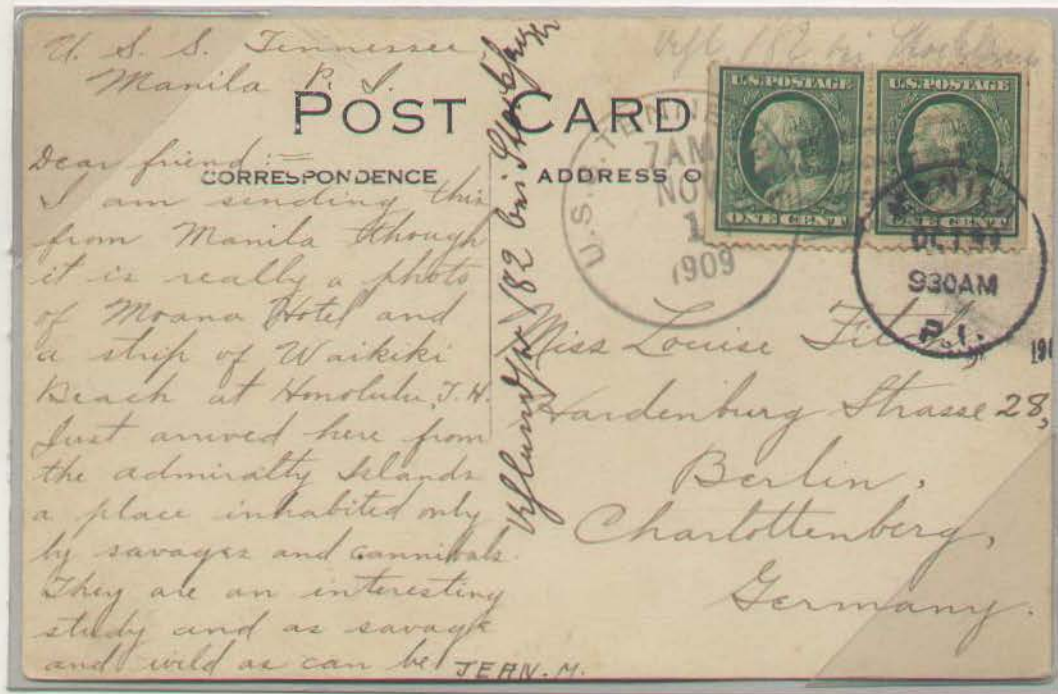 U. S. S. Tennessee
Manila P. I.
POST CARD
CORRESPONDENCE
ADDRESS O
Dear friend:=
I am sending this
from Manila though
it is really a photo
of Moana Hotel and
a strip of Waikiki
Beach at Honolulu, T.H.
Just arrived here from
the admiralty Islands
a place inhabited only
by savages and cannibals.
They are an interesting
study and as savage
and wild as can be!
JEAN. M.
182 bei
182 bei
U.S. POSTAGE
ONE CENT
U.S. POSTAGE
ONE CENT
U.S.S. TENNE
7AM
NOV
1
1909
930AM
P.I.
Miss Louise
Hardenburg Strasse 28,
Berlin,
Charlottenberg,
Germany.